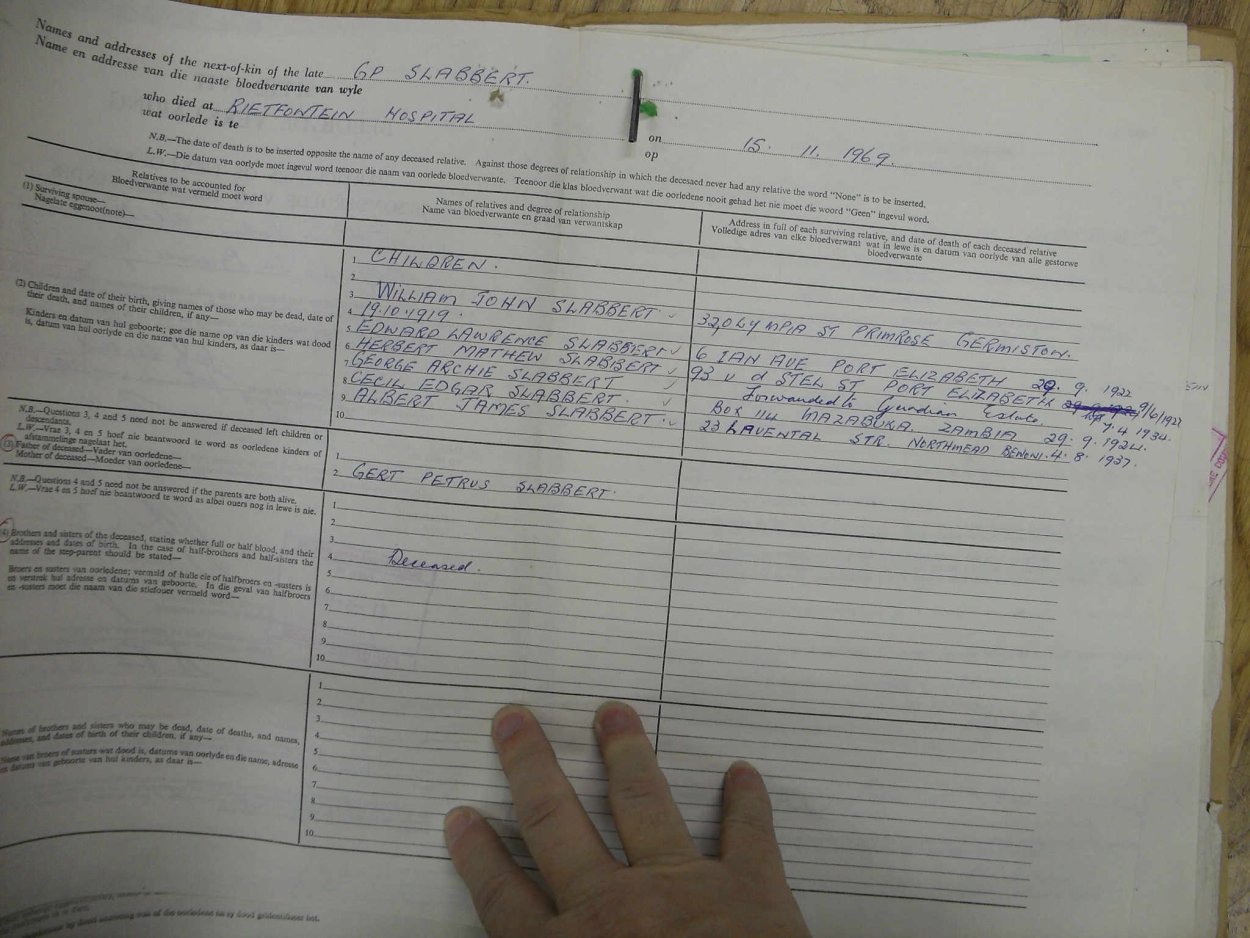 Names and addresses of the next-of-kin of the late GP SLABBERT.
Name en addresse van die naaste bloedverwante van wyle
who died at RIETFONTEIN HOSPITAL on 15. 11. 1969.
wat oorlede is te op
N.B.—The date of death is to be inserted opposite the name of any deceased relative. Against those degrees of relationship in which the decesaed never had any relative the word "None" is to be inserted.
L.W.—Die datum van oorlyde moet ingevul word teenoor die naam van oorlede bloedverwante. Teenoor die klas bloedverwant wat die oorledene nooit gehad het nie moet die woord "Geen" ingevul word.
Relatives to be accounted for
Bloedverwante wat vermeld moet word
Names of relatives and degree of relationship
Name van bloedverwante en graad van verwantskap
Address in full of each surviving relative, and date of death of each deceased relative
Volledige adres van elke bloedverwant wat in lewe is en datum van oorlyde van alle gestorwe
bloedverwante
(1) Surviving spouse—
Nagelate eggenoot(note)—
(2) Children and date of their birth, giving names of those who may be dead, date of
their death, and names of their children, if any—
Kinders en datum van hul geboorte; gee die name op van die kinders wat dood
is, datum van hul oorlyde en die name van hul kinders, as daar is—
1 CHILDREN.
2
3 WILLIAM JOHN SLABBERT
4 19.10.1919. 32, OLYMPIA ST PRIMROSE GERMISTON.
5 EDWARD LAWRENCE SLABBERT
6 HERBERT MATHEW SLABBERT 6 IAN AVE PORT ELIZABETH 29. 9. 1922
7 GEORGE ARCHIE SLABBERT 93 v d STEL ST PORT ELIZABETH 9/6/1927
8 CECIL EDGAR SLABBERT. Forwarded to Guardian Estate, 7.4 1934.
9 ALBERT JAMES SLABBERT. BOX 114 MAZABUKA. ZAMBIA 29. 9. 1924.
10 23 LAVENTAL STR NORTHMEAD BENONI. 4. 8. 1937.
N.B.—Questions 3, 4 and 5 need not be answered if deceased left children or
descendants.
L.W.—Vrae 3, 4 en 5 hoef nie beantwoord te word as oorledene kinders of
afstammelinge nagelaat het.
(3) Father of deceased—Vader van oorledene—
Mother of deceased—Moeder van oorledene—
1
2 GERT PETRUS SLABBERT.
N.B.—Questions 4 and 5 need not be answered if the parents are both alive.
L.W.—Vrae 4 en 5 hoef nie beantwoord te word as albei ouers nog in lewe is nie.
(4) Brothers and sisters of the deceased, stating whether full or half blood, and their
addresses and dates of birth. In the case of half-brothers and half-sisters the
name of the step-parent should be stated—
Broers en susters van oorledene; vermeld of hulle eie of halfbroers en -susters is
en verstrek hul adresse en datums van geboorte. In die geval van halfbroers
en -susters moet die naam van die stiefouer vermeld word—
1
2
3
4 Deceased.
5
6
7
8
9
10
Names of brothers and sisters who may be dead, date of deaths, and names,
addresses, and dates of birth of their children, if any—
Name van broers of susters wat dood is, datums van oorlyde en die name, adresse
en datums van geboorte van hul kinders, as daar is—
1
2
3
4
5
6
7
8
9
10